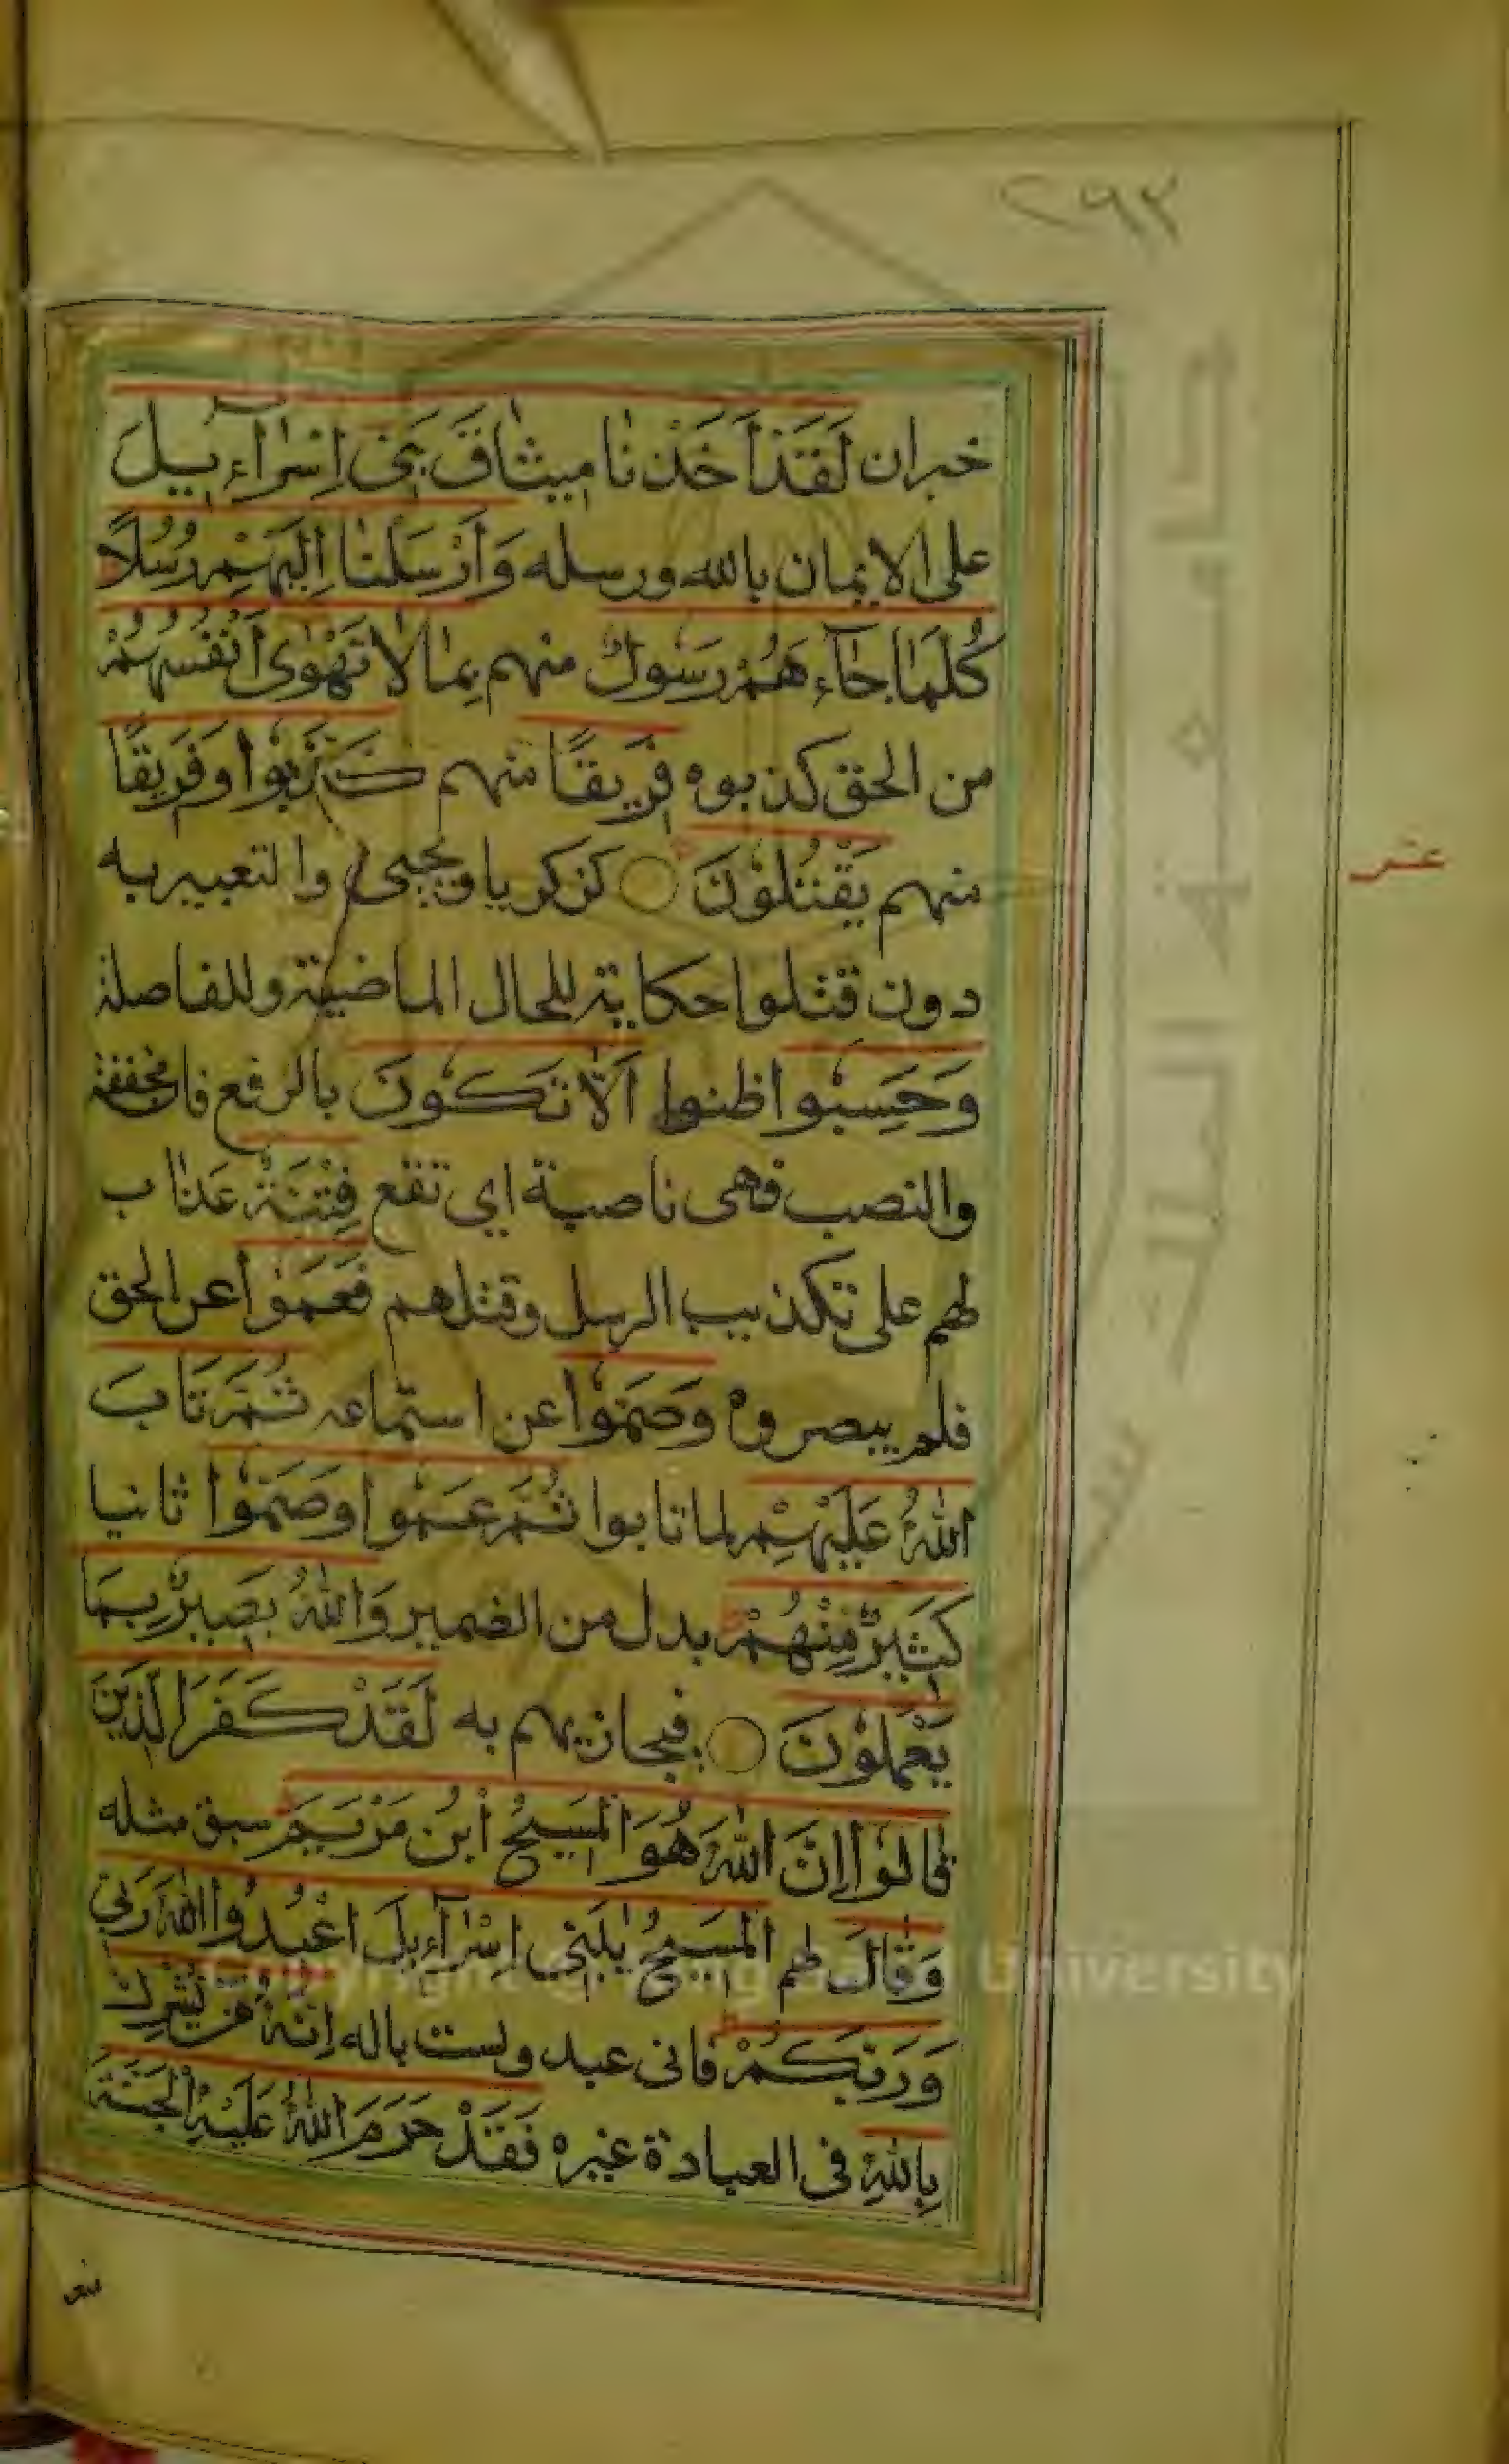 ٢٩٢
خبران لَقَدْ اَخَذْنَا مِيثَاقَ بَنِي اِسْرَآءِيلَ
على الايمان بالله ورسله وَاَرْسَلْنَا اِلَيْهِمْ رُسُلًا
كُلَّمَا جَآءَهُمْ رَسُولٌ منهم بِمَا لَا تَهْوٰى اَنْفُسُهُمْ
من الحق كذبوه فَرِيقًا منهم كَذَّبُوا وَفَرِيقًا
منهم يَقْتُلُوْنَ كزكريا ويحيى والتعبير به
دون قتلوا حكاية للحال الماضية وللفاصلة
وَحَسِبُوا ظنوا اَلَّا تَكُونَ بالرفع فان مخففة
والنصب فهى ناصبة اى تقع فِتْنَةٌ عذاب
لهم على تكذيب الرسل وقتلهم فَعَمُوْا عن الحق
فلم يبصروه وَصَمُّوْا عن استماعه ثُمَّ تَابَ
اللهُ عَلَيْهِمْ لما تابوا ثُمَّ عَمُوا وَصَمُّوْا ثانيا
كَثِيرٌ مِنْهُمْ بدل من الضمير وَاللهُ بَصِيرٌ بِمَا
يَعْمَلُوْنَ فيجازيهم به لَقَدْ كَفَرَ الَّذِينَ
قَالُوْا اِنَّ اللهَ هُوَ الْمَسِيحُ ابْنُ مَرْيَمَ سبق مثله
وَقَالَ لهم الْمَسِيحُ يٰبَنِى اِسْرَآءِيلَ اعْبُدُوا اللهَ رَبِّى
وَرَبَّكُمْ فانى عبد ولست باله اِنَّهُ مَنْ يُشْرِكْ
بِاللهِ فى العبادة غيره فَقَدْ حَرَّمَ اللهُ عَلَيْهِ الْجَنَّةَ
عشر
University